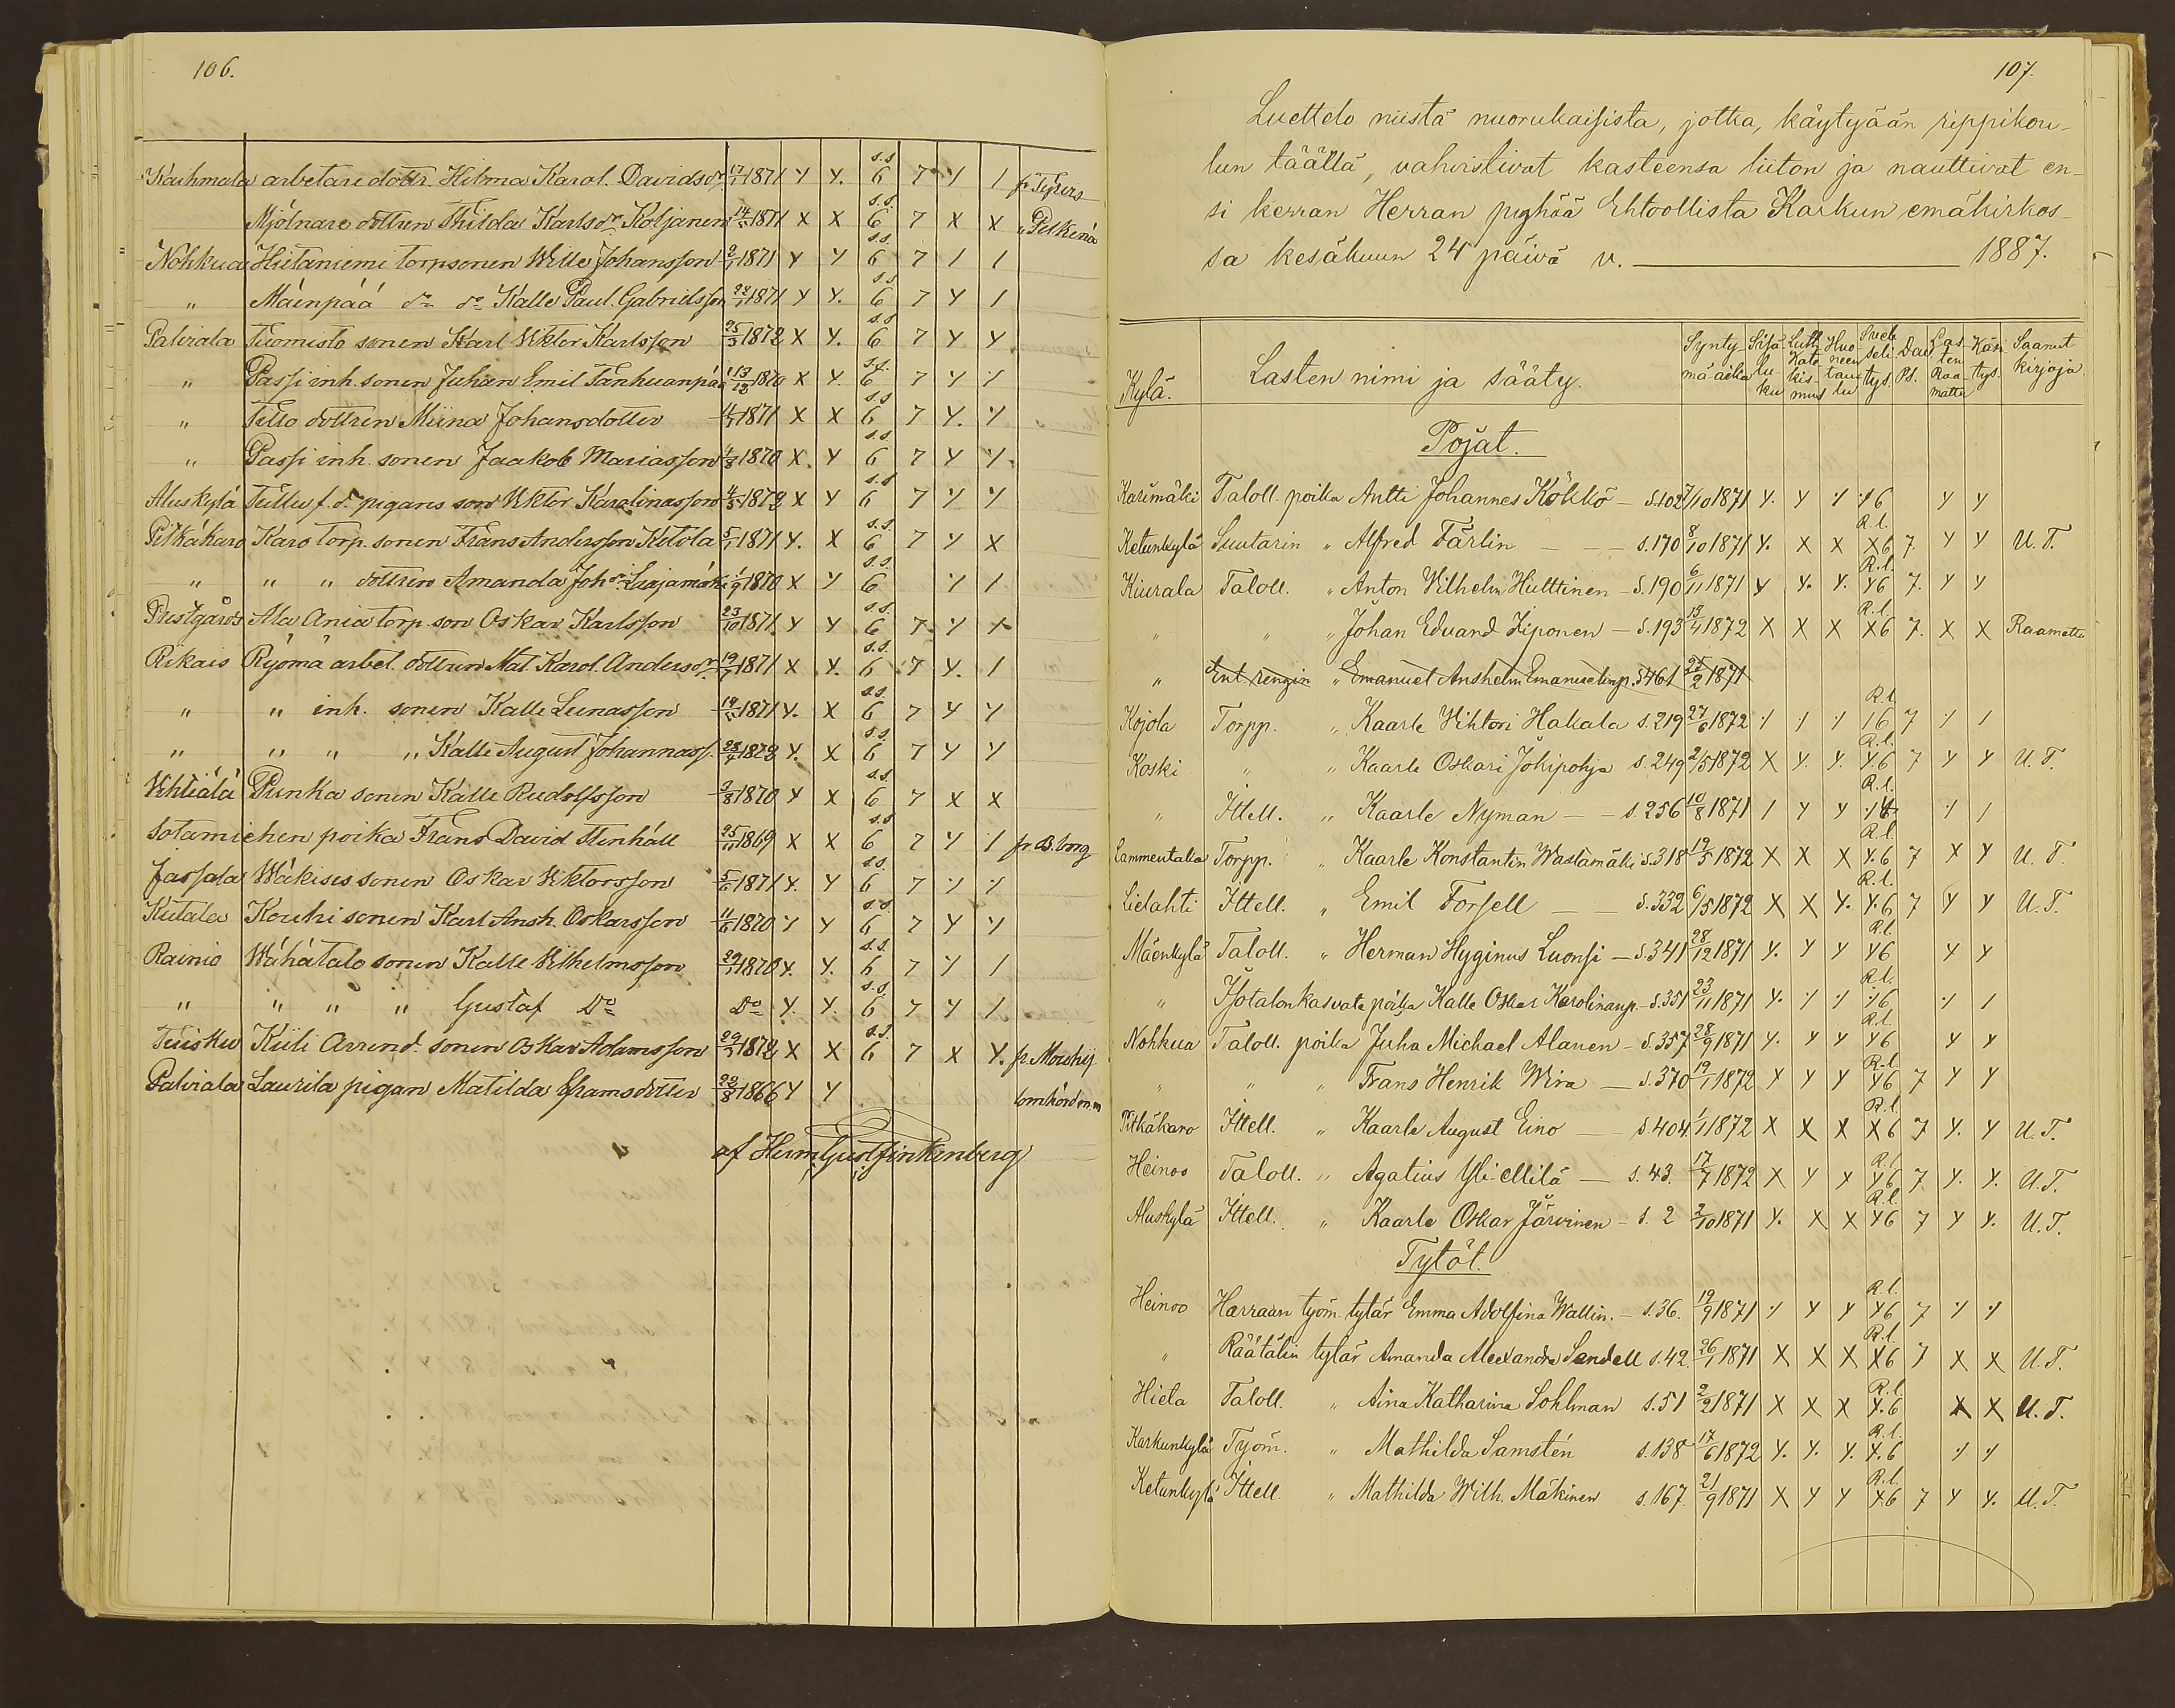 106.
Karhmala arbetare dottr. Hilma Karol. Davidsdr 17/1 1871 s.s. 6 7 fr. Tyrvis
Mjölnare dottren Thilda Karlsdr Koljanen 14/5 1871 X X s.s. 6 7 X X " Pelkenä
Nohkua Hietaniemi torpsonen Wille Johansson 2/1 1871 s.s. 6 7
" Mäenpää do do Kalle Paul. Gabrielsson 22/1 1871 s.s. 6 7
Palviala Tuomisto sonen Karl Viktor Karlsson 25/3 1872 X s.s. 6 7
" Passi inh. sonen Juhan Emil Tanhuanpää 13/12 1870 X s.s. 6 7
" Tello dottren Miina Johansdotter 4/7 1871 X X s.s. 6 7
" Passi inh. sonen Jaakob Mariasson 4/8 1870 X s.s. 6 7
Aluskylä Tullu f.d. pigans son Viktor Karolinasson 4/5 1872 X s.s. 6 7
Pitkäkaro Karo torp. sonen Frans Andersson Ketola 5/1 1871 X s.s. 6 7 X
" " " dottren Amanda Joh.dr Linjamäki 1/9 1870 X s.s. 6
Prestgårds Ala Ania torp. son Oskar Karlsson 23/10 1871 s.s. 6 7
Rikais Ryömä arbet. dottren Mat. Karol. Andersdr 19/7 1871 X s.s. 6 7
" " inh. sonen Kalle Leenasson 19/5 1871 X s.s. 6 7
" " " " Kalle August Johannass. 28/4 1872 X s.s. 6 7
Vihtiälä Punka sonen Kalle Rudolfsson 3/8 1870 X s.s. 6 7 X X
Sotamiehen poika Frans David Stenhäll 25/11 1869 X X s.s. 6 7 fr. B.borg
Jassala Wäkisis sonen Oskar Viktorsson 5/6 1871 s.s. 6 7
Kutala Kouhi sonen Karl Ansh. Oskarsson 11/6 1870 s.s. 6 7
Rainio Wähätalo sonen Kalle Vilhelmsson 29/1 1870 s.s. 6 7
" " " " Gustaf Do Do s.s. 6 7
Tuisku Kiili Arrend. sonen Oskar Adamsson 29/3 1872 X X s.s. 6 7 X fr. Mouhij.
Palviala Laurila pigan Matilda Efraimsdotter 22/8 1866
af Herm. Gust. Finkenberg
107.
Luettelo niistä nuorukaisista, jotka, käytyään rippikou-
lun täällä, vahvistivat kasteensa liiton ja nauttivat en-
si kerran Herran pyhää Ehtoollista Karkun emäkirkos-
sa kesäkuun 24 päivä v. 1887.
Kylä. Lasten nimi ja sääty. Synty-mä-aika Sisä-lu-ku Luth. Kate-kis-mus Huo-neen tau-lu Sveb. seli-tys. Dav. Ps. Las-ten Raa-mattu Käsi-tys. Saanut kirjoja.
Pojat.
Karimäki Taloll. poika Antti Johannes Kökkö - S.102 7/10 1871 6
Ketunkylä Suutarin " Alfred Färlin - S.170 8/10 1871 X X R.l. X6 7. U.T.
Kiurala Taloll. " Anton Vilhelm Hulttinen - S.190 6/11 1871 R.l. 6 7.
" " " Johan Edvard Ziponen - S.193 13/4 1872 X X X R.l. X6 7. X X Raamattu
" Ent. rengin " Emanuel Anshelm Emanuelinp. S.461 25/2 1871
Kojola Torpp. " Kaarle Vihtori Hakala S.219 27/6 1872 R.l. 6 7
Koski " " Kaarle Oskari Jokipohja S.249 2/5 1872 X R.l. 6 7 U.T.
" Ittell. " Kaarle Nyman - S.256 10/8 1871 R.l.
Lammentaka Torpp. " Kaarle Konstantin Wastamäki S.318 19/5 1872 X X X R.l. 6 7 X U.T.
Lielahti Ittell. " Emil Forsell - S.332 6/5 1872 X X R.l. 6 7 U.T.
Mäenkylä Taloll. " Herman Hyginus Luonsi - S.341 28/12 1871 R.l. 6
" Isotalon kasvate poika Kalle Oskar Karolinanp. - S.351 23/11 1871 R.l. 6
Nohkua Taloll. poika Juha Michael Alanen - S.357 28/9 1871 R.l. 6
" " " Frans Henrik Wira - S.370 19/1 1872 R.l. 6 7
Pitkäkaro Ittell. " Kaarle August Eino - S.404 1/1 1872 X X X R.l. X6 7 U.T.
Heinoo Taloll. " Agatius Yli-ellilä - S.43. 17/7 1872 X R.l. 6 7 U.T.
Aluskylä Ittell. " Kaarle Oskar Järvinen - S. 2 2/10 1871 X X R.l. 6 7 U.T.
Tytöt.
Heinoo Harraan työm. tytär Emma Adolfina Wallin. - S.36. 19/9 1871 R.l. 6 7
" Räätälin tytär Amanda Alexandra Sandell S.42. 26/1 1871 X X X R.l. X6 7 X X U.T.
Hiela Taloll. " Aina Katharina Sohlman S.51 2/2 1871 X X X R.l. 6 X X U.T.
Karkunkylä Työm. " Mathilda Samstén S.138 17/6 1872 R.l. 6
Ketunkylä Ittell. " Mathilda Wilh. Mäkinen S.167. 21/9 1871 X R.l. 6 7 U.T.